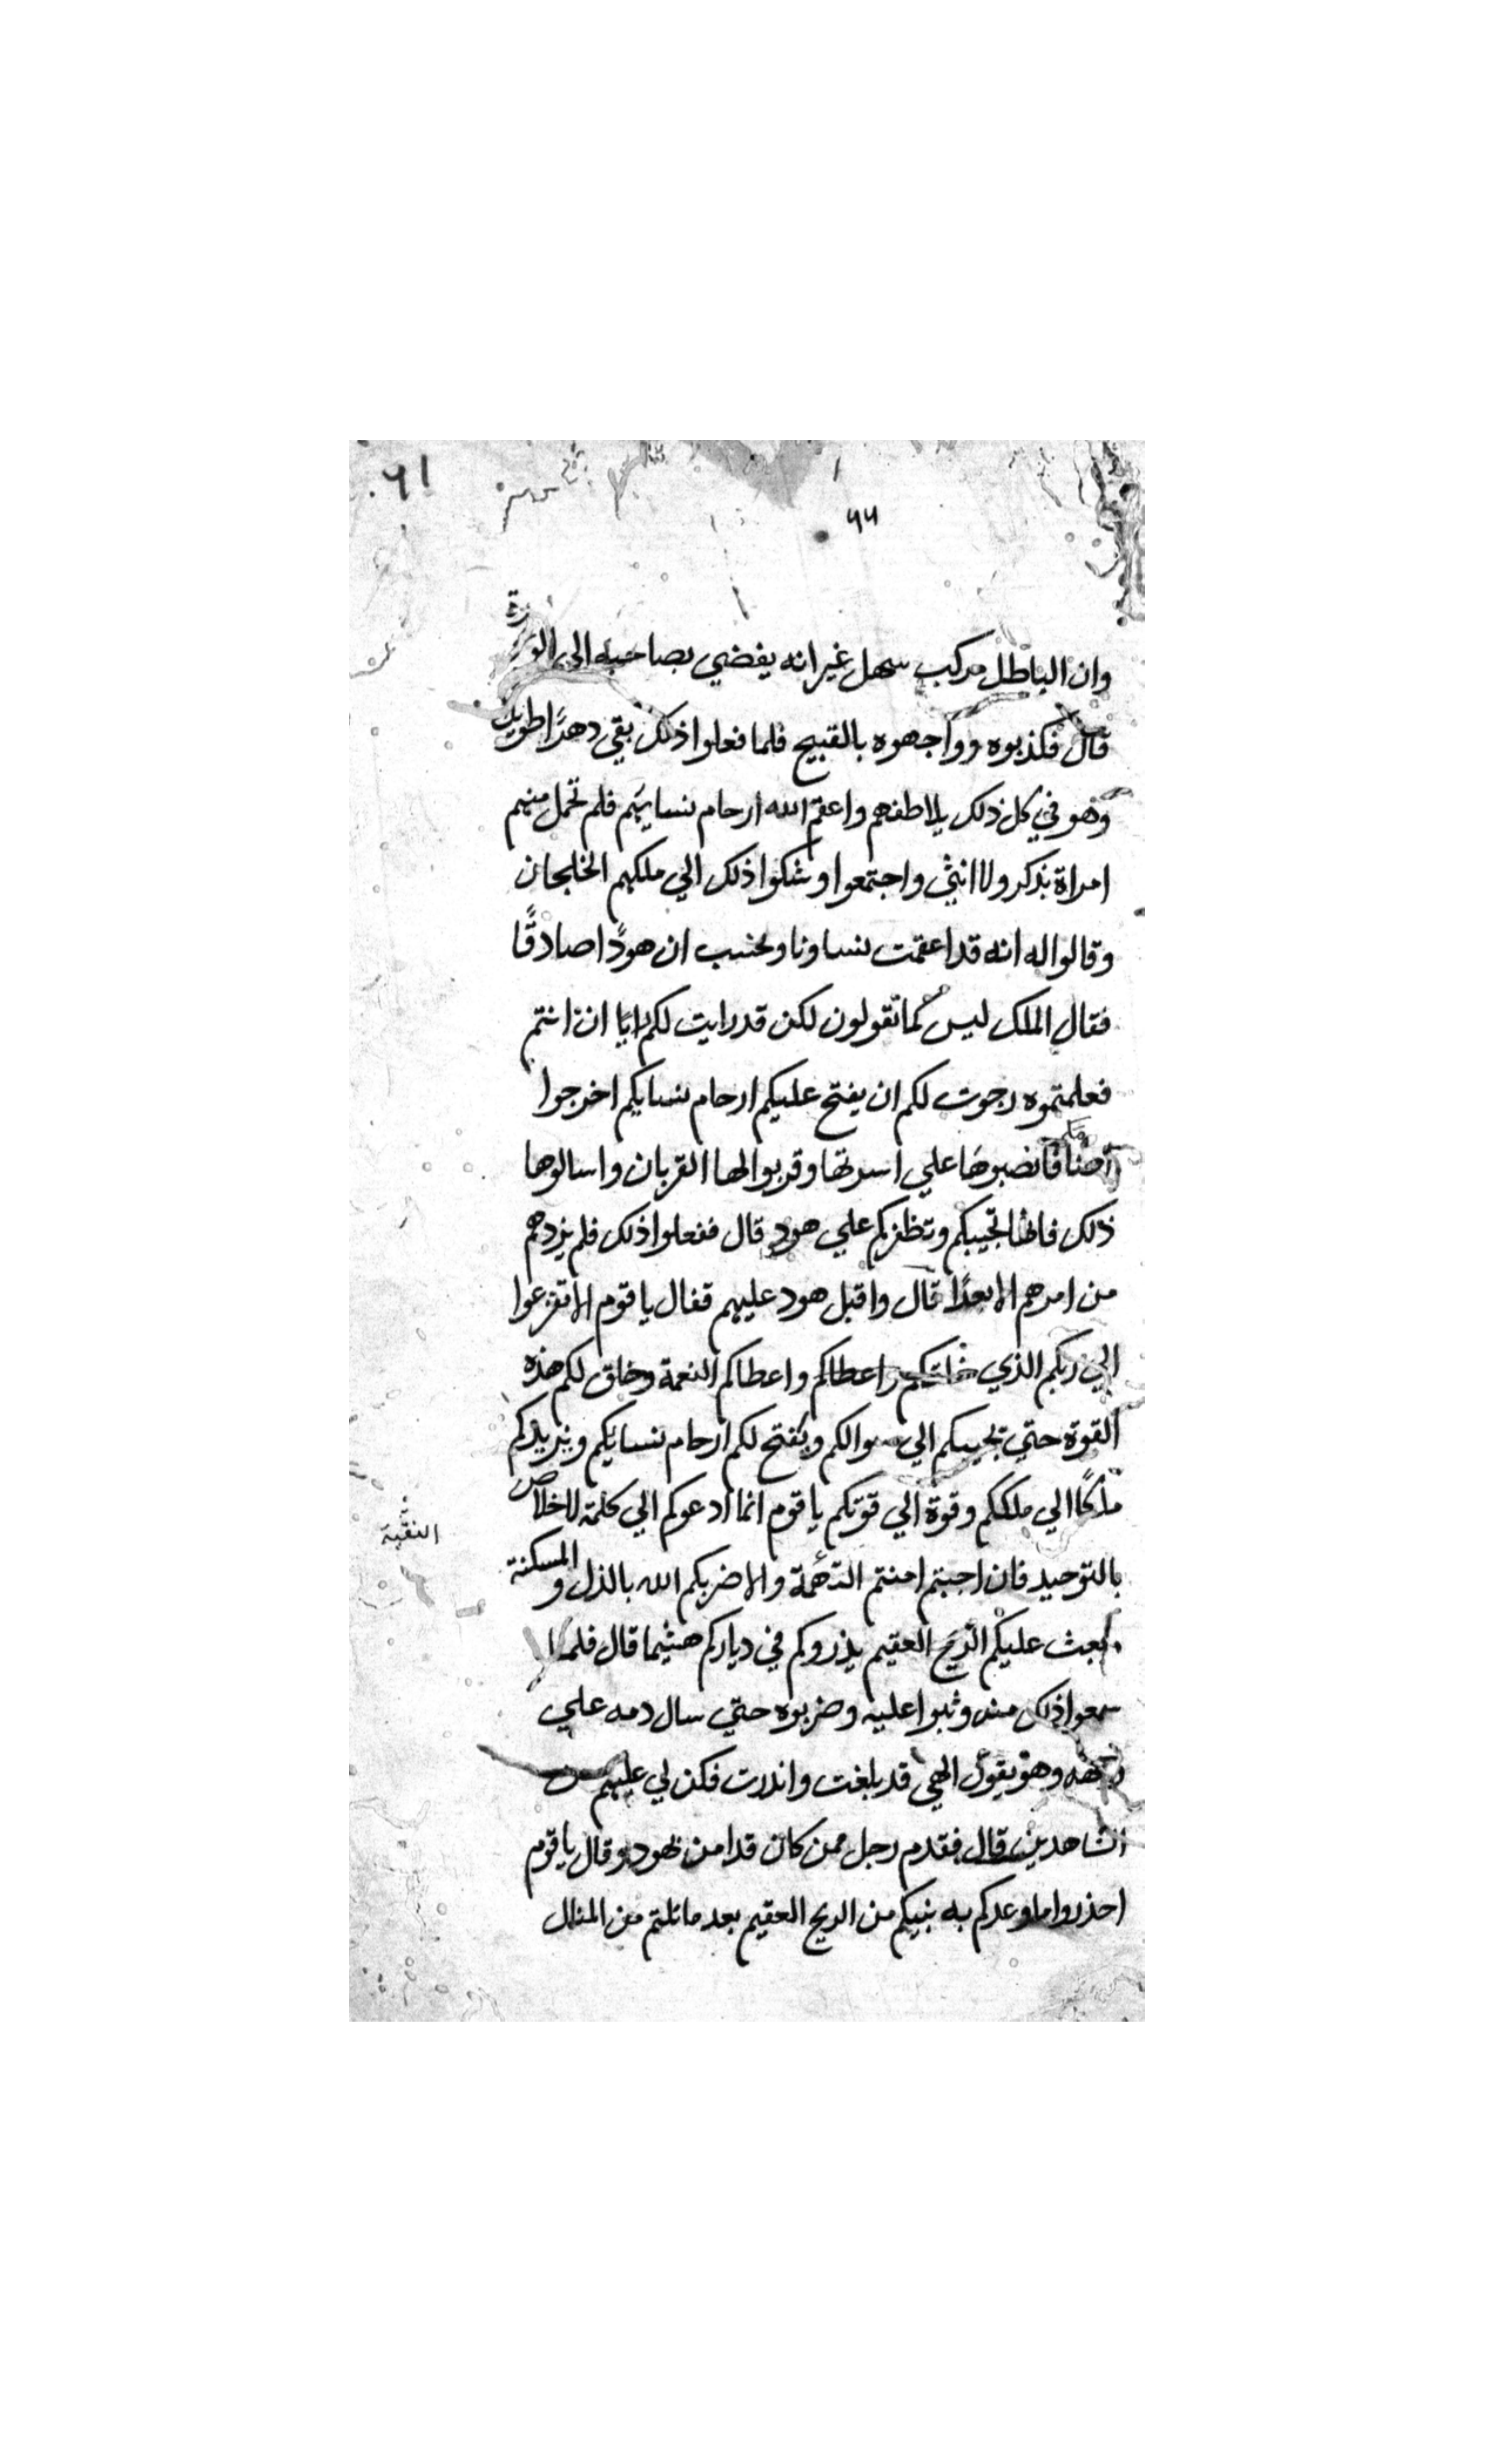 ٦١
٦٦
وان الباطل مركب سهل غير انه يفضي بصاحبه الى
قال فكذبوه وواجهوه بالقبيح فلما فعلوا ذلك بقي دهرًا طويلا
وهو في كل ذلك يلاطفهم واعقم الله ارحام نسايهم فلم تحمل منهم
امراة بذكر ولا انثي واجتمعوا وشكوا ذلك الي ملكهم الخلجان
وقالوا له انه قد اعقمت نساونا ونحسب ان هودًا صادقًا
فقال الملك ليس كما تقولون لكن قد رايت لكم رايًا ان انتم
فعلمتموه رجوت لكم ان يفتح عليكم ارحام نسايكم اخرجوا
فانصبوها علي اسرتها وقربوا لها القربان واسالوها
ذلك فانها تجيبكم وتظفركم علي هود قال ففعلوا ذلك فلم يزدهم
من امرهم الا بعدًا قال واقبل هود عليهم فقال يا قوم الا تفزعوا
الي ربكم الذي خلقكم واعطاكم واعطاكم النعمة وخلق لكم هذه
القوة حتي يجيبكم الي سوالكم ويفتح لكم ارحام نسايكم ويزيدكم
ملكًا الي ملككم وقوة الي قوتكم يا قوم انما ادعوكم الي كلمة الاخلاص
النقية
بالتوحيد فان اجبتم امنتم والا ضربكم الله بالذل والمسكنة
وبعث عليكم الريح العقيم يذروكم في دياركم هشيما قال فلما
سمعوا ذلك منه وثبوا عليه وضربوه حتي سال دمه علي
وجهه وهو يقول الهي قد بلغت وانذرت فكن لي عليهم من
الشاهدين قال فقدم رجل ممن كان قد امن بهود وقال يا قوم
احذروا ما وعدكم به نبيكم من الريح العقيم بعد ما نلتم من المنال